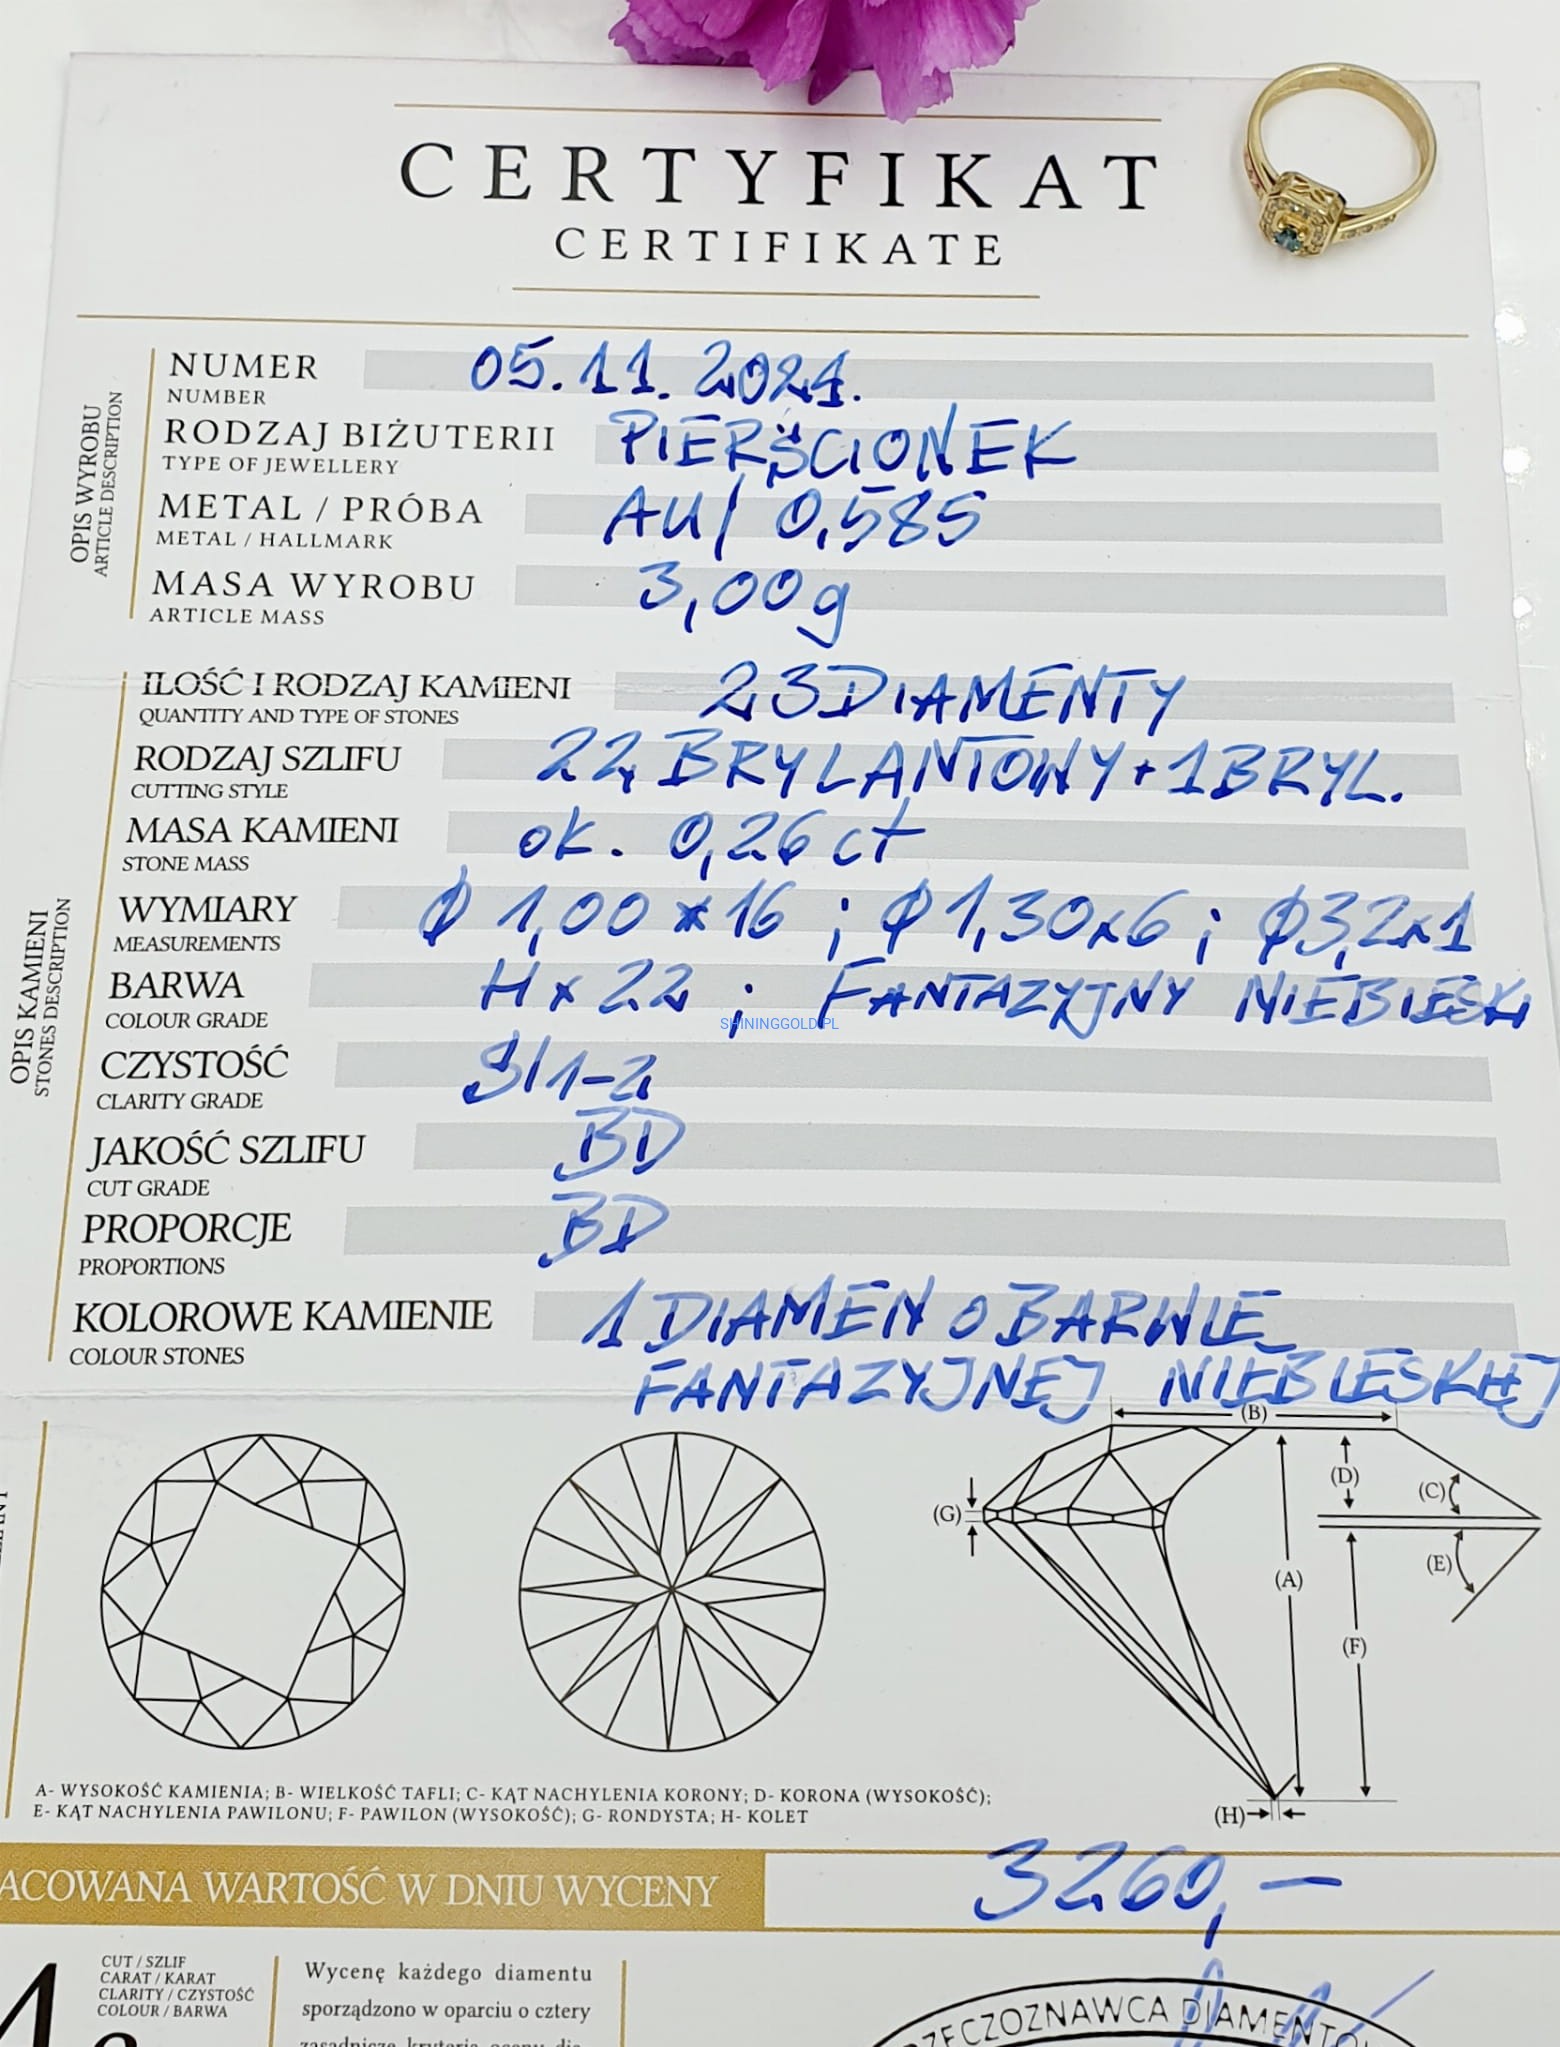 CERTYFIKAT
CERTIFIKATE
OPIS WYROBU
ARTICLE DESCRIPTION
NUMER 05.11.2024.
NUMBER
RODZAJ BIŻUTERII PIERŚCIONEK
TYPE OF JEWELLERY
METAL / PRÓBA AU/ 0,585
METAL / HALLMARK
MASA WYROBU 3,00g
ARTICLE MASS
OPIS KAMIENI
STONES DESCRIPTION
ILOŚĆ I RODZAJ KAMIENI 23 DIAMENTY
QUANTITY AND TYPE OF STONES
RODZAJ SZLIFU 22 BRYLANTOWY + 1 BRYL.
CUTTING STYLE
MASA KAMIENI ok. 0,26 ct
STONE MASS
WYMIARY ϕ 1,00 x 16 ; ϕ 1,30x6 ; ϕ3,2x1
MEASUREMENTS
BARWA H x 22 ; FANTAZYJNY NIEBIESKI
COLOUR GRADE
SHININGGOLD.PL
CZYSTOŚĆ SI 1-2
CLARITY GRADE
JAKOŚĆ SZLIFU BD
CUT GRADE
PROPORCJE BD
PROPORTIONS
KOLOROWE KAMIENIE 1 DIAMEN O BARWIE
COLOUR STONES
FANTAZYJNEJ NIEBIESKIEJ
(B)
(D)
(C)
(G)
(E)
(A)
(F)
(H)
A- WYSOKOŚĆ KAMIENIA; B- WIELKOŚĆ TAFLI; C- KĄT NACHYLENIA KORONY; D- KORONA (WYSOKOŚĆ);
E- KĄT NACHYLENIA PAWILONU; F- PAWILON (WYSOKOŚĆ); G- RONDYSTA; H- KOLET
ACOWANA WARTOŚĆ W DNIU WYCENY 3260,-
CUT / SZLIF
CARAT / KARAT
CLARITY / CZYSTOŚĆ
COLOUR / BARWA
Wycenę każdego diamentu
sporządzono w oparciu o cztery
zasadnicze kryteria oceny dia-
RZECZOZNAWCA DIAMENTÓW